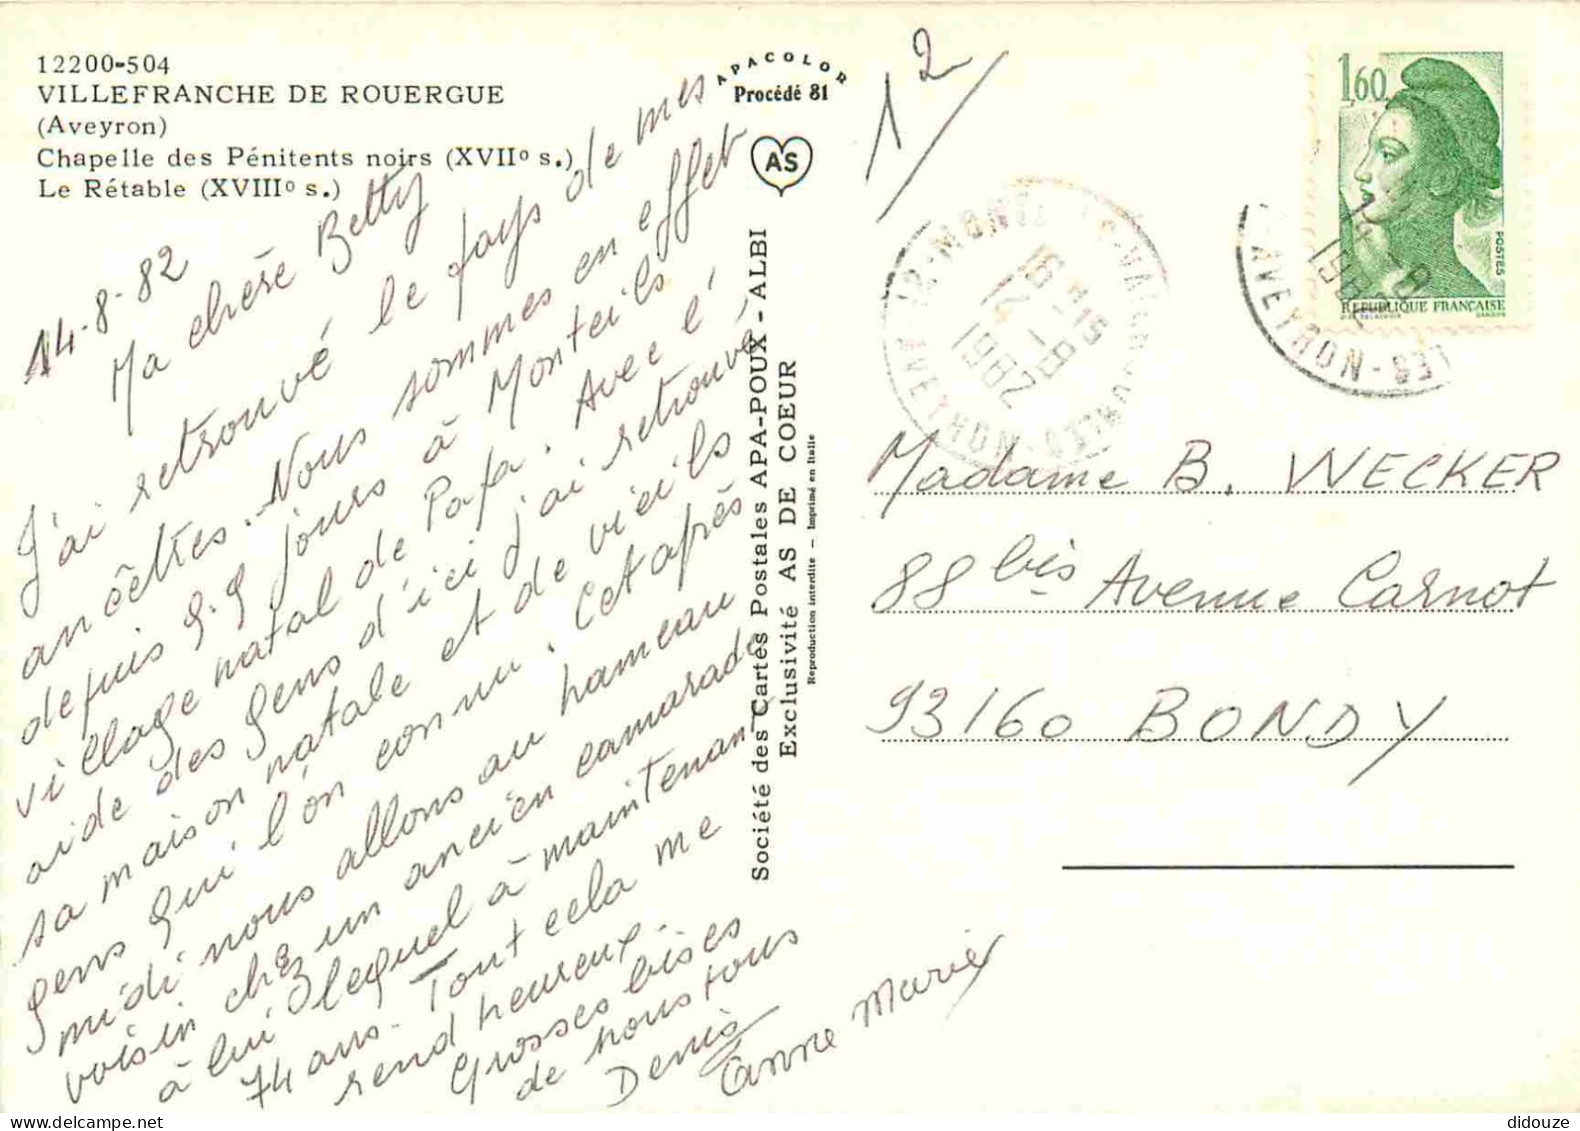 12200-504
VILLEFRANCHE DE ROUERGUE
(Aveyron)
Chapelle des Pénitents noirs (XVIIº s.)
Le Rétable (XVIIIº s.)
APACOLOR
Procédé 81
AS
14-8-82
Ma chère Betty
J'ai retrouvé le pays de mes
ancêtres. Nous sommes en effet
depuis jours à Monteils
village natal de Papa. Avec l'
aide des gens d'ici j'ai retrouvé
sa maison natale et de vieils
gens qui l'on connu. Cet après
midi nous allons au hameau
voisin chez un ancien camarade
à lui lequel à maintenant
74 ans. Tout cela me
rend heureux.
Grosses bises
de nous tous
Denis
Anne Marie
Société des Cartes Postales APA-POUX - ALBI
Exclusivité AS DE COEUR
Reproduction interdite — Imprimé en Italie
12
1,60
POSTES
REPUBLIQUE FRANÇAISE
16 H 15
14 - 8
1982
AVEYRON
14 - 8
AVEYRON
Madame B. WECKER
88 bis Avenue Carnot
93160 BONDY
didouze